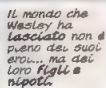 Il mondo che
Wesley ha
lasciato non è
pieno dei suoi
eroi... ma dei
loro figli e
nipoti.